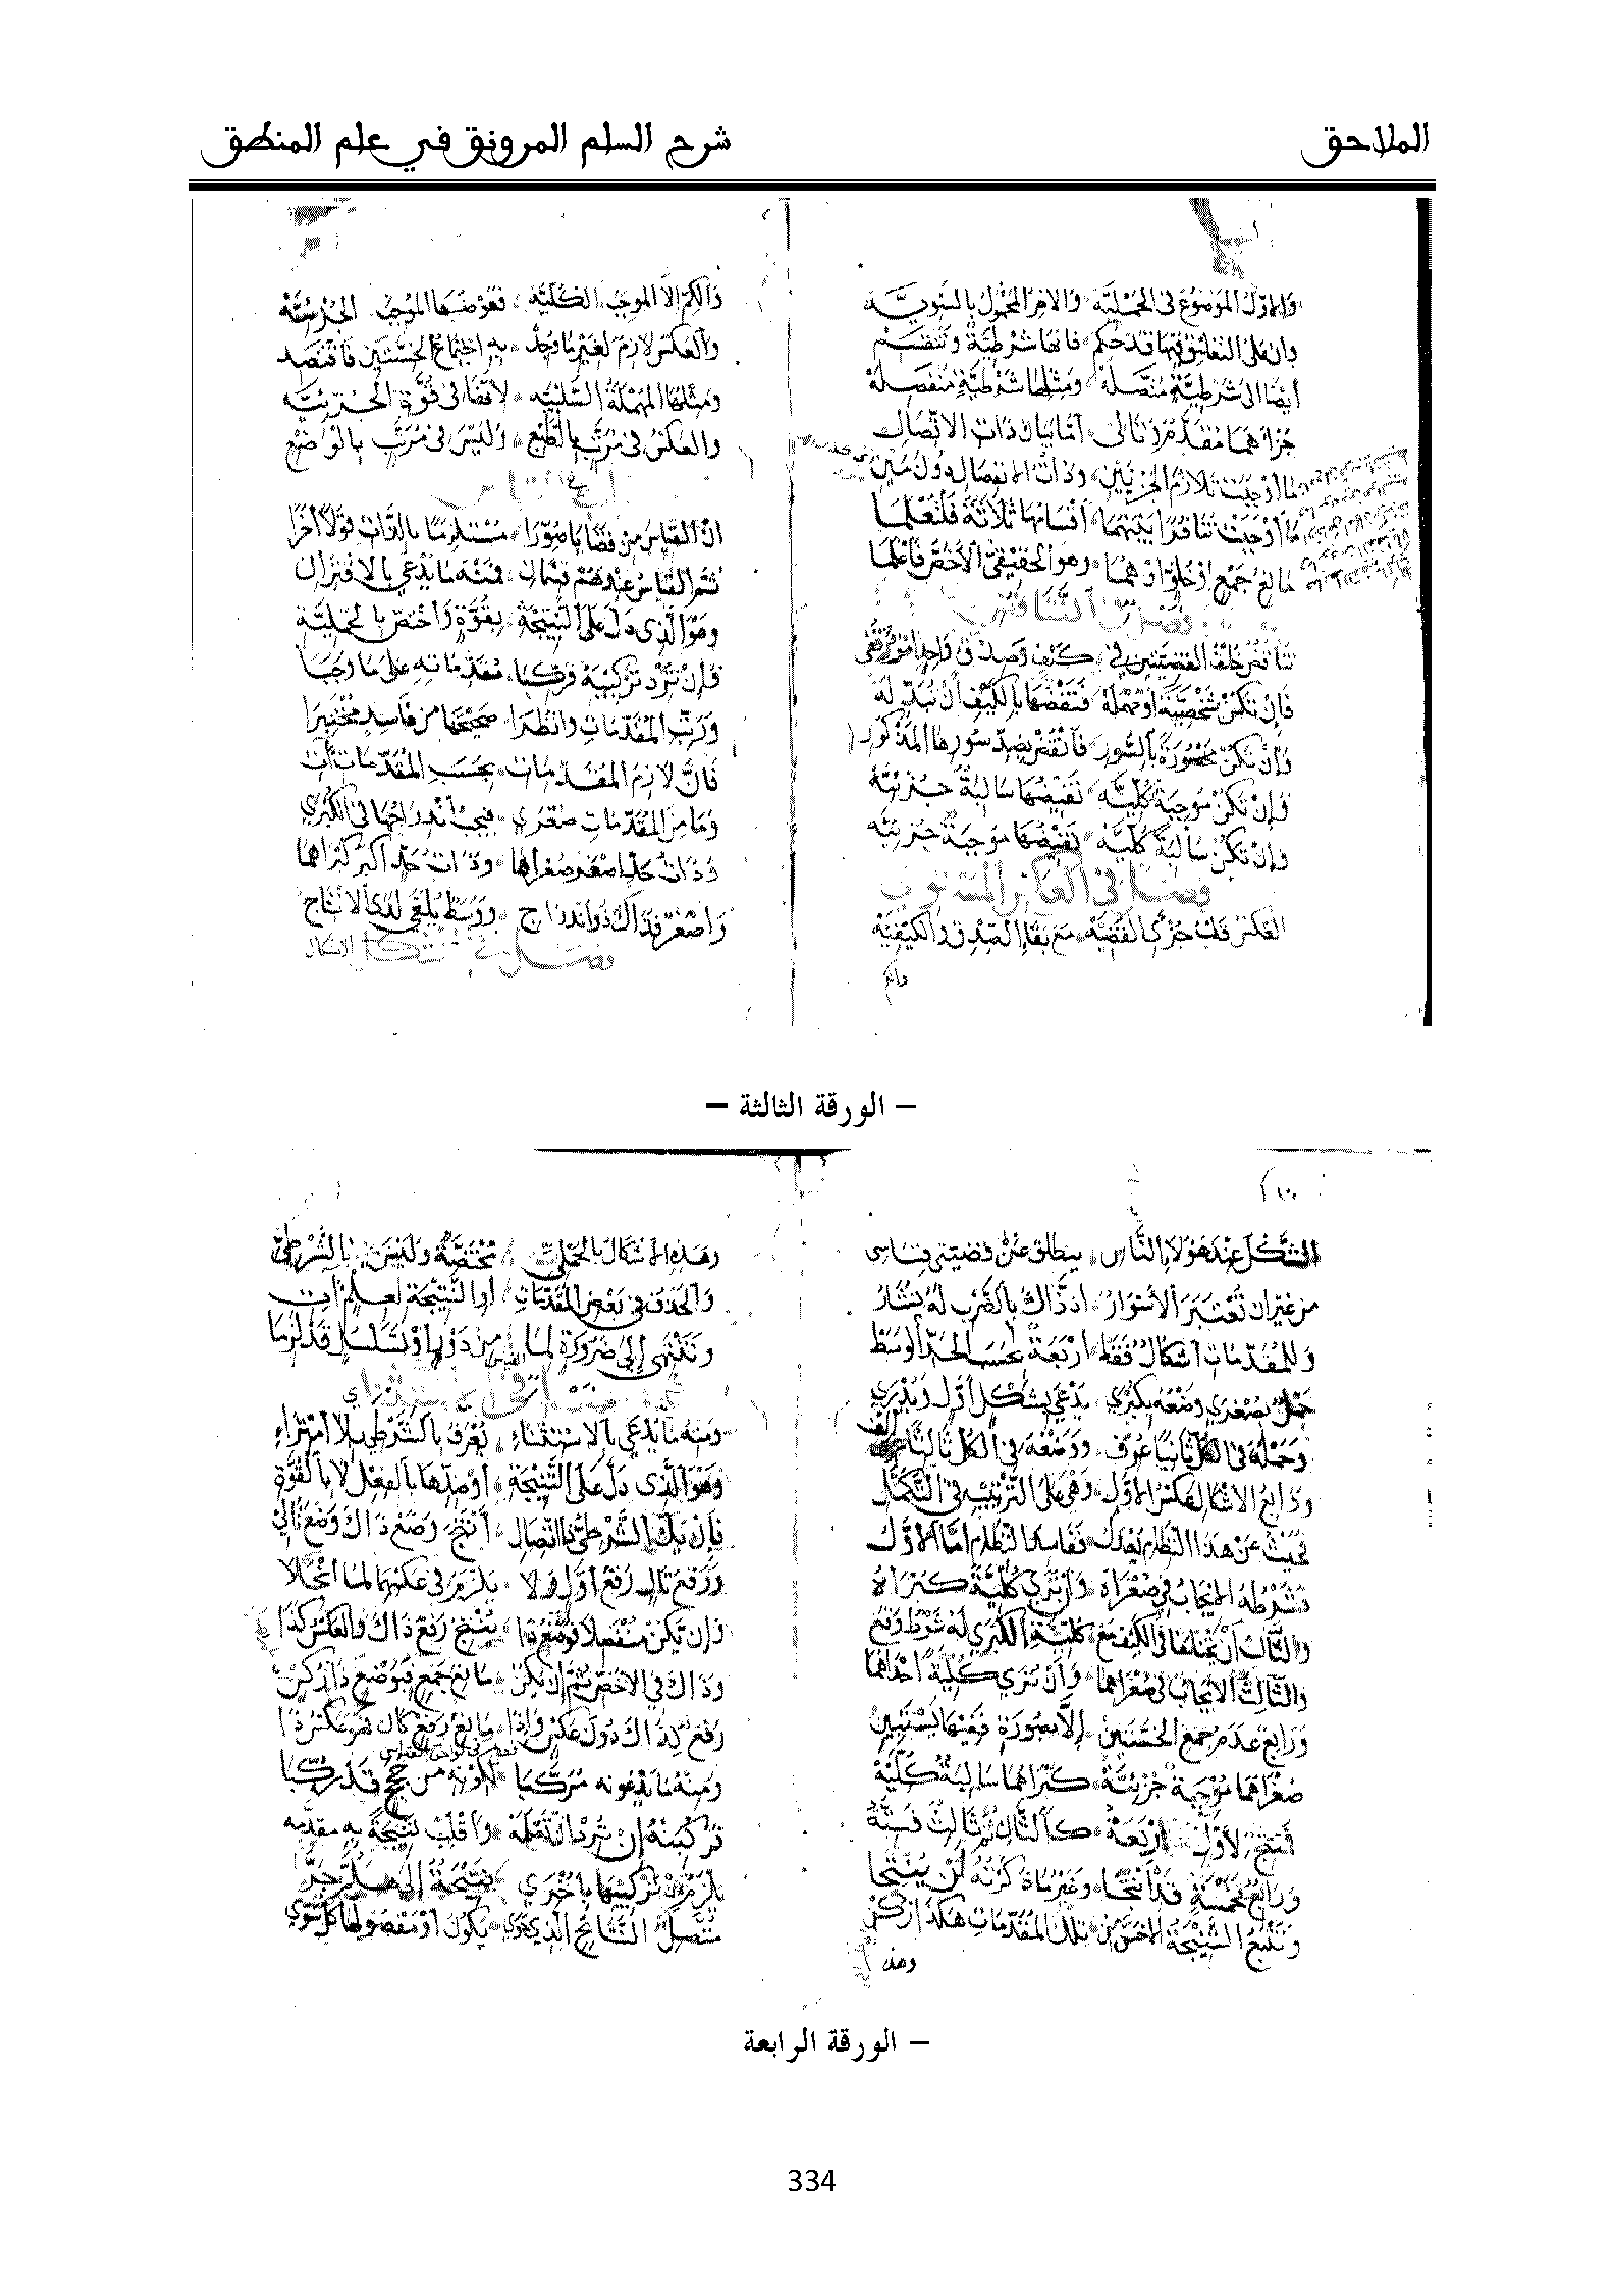 الملاحق
شرح السلم المرونق في علم المنطق
والاول الموضوع في الحملية والاخر المحمول بالسوية
وان على التعليق فيها قد حكم فانها شرطية وتنقسم
أيضا الى شرطية متصلة ومثلها شرطية منفصلة
جزآهما مقدم وتالى أما بيان ذات الاتصال
ما أوجبت تلازم الجزئين وذات الانفصال دون مين
ما أوجبت تنافرا بينهما أقسامها ثلاثة فلتعلما
مانع جمع او خلو او هما وهو الحقيقي الأخص فاعلما
فصل في التناقض
تناقض خلف القضيتين في كيف وصدق واحد امر قفي
فان تكن شخصية أو مهملة فنقضها بالكيف أن تبدله
وإن تكن محصورة بالسور فانقض بضد سورها المذكور
فإن تكن موجبة كلية نقيضها سالبة جزئية
وإن تكن سالبة كلية نقيضها موجبة جزئية
فصل في العكس المستوي
العكس قلب جزئي القضية مع بقاء الصدق والكيفية
والكم
والكم إلا الموجب الكلية فعوضها الموجب الجزئية
والعكس لازم لغير ما وجد به اجتماع الخستين فاقتصد
ومثلها المهملة السلبية لانها في قوة الجزئية
والعكس في مرتب بالطبع وليس في مرتب بالوضع
ان القياس من قضايا صورا مستلزما بالذات قولا آخرا
ثم القياس عندهم قسمان فمنه ما يدعى بالاقتران
وهو الذي دل على النتيجة بقوة واختص بالحملية
فإن ترد تركيبه فركبا مقدماته على ما وجبا
ورتب المقدمات وانظرا صحيحها من فاسد مختبرا
فان لازم المقدمات بحسب المقدمات آت
وما من المقدمات صغرى فيجب اندراجها في الكبرى
وذات حد اصغر صغراها وذات حد أكبر كبراها
وأصغر فذاك ذو اندراج ووسط يلغى لدى الانتاج
فصل في الاشكال
– الورقة الثالثة –
الشكل عند هؤلاء الناس يطلق عن قضيتي قياس
من غير ان تعتبر الأسوار اذ ذاك بالضرب له يشار
وللمقدمات أشكال فقط أربعة بحسب الحد الوسط
حمل بصغرى وضعه بكبرى يدعى بشكل أول ويدرى
وحمله في الكل ثانيا عرف ووضعه في الكل ثالثا ألف
ورابع الاشكال عكس الاول وهي على الترتيب في التكمل
فحيث عن هذا النظام يعدل ففاسد النظام اما الاول
فشرطه الايجاب في صغراه وأن ترى كلية كبراه
والثان أن يختلفا في الكيف مع كلية الكبرى له شرط وقع
والثالث الايجاب في صغراهما وأن ترى كلية احداهما
ورابع عدم جمع الخستين إلا بصورة ففيها يستبين
صغراهما موجبة جزئية كبراهما سالبة كلية
فمنتج لأول أربعة كالثان ثم ثالث فستة
ورابع بخمسة قد أنتجا وغير ما ذكرته لن ينتجا
وتتبع النتيجة الاخس من تلك المقدمات هكذا زكن
وهذه
وهذه الاشكال بالحملي مختصة وليس بالشرطي
والحذف في بعض المقدمات أو النتيجة لعلم آت
وتنتهي إلى ضرورة لما من دور او تسلسل قد لزما
ومنه ما يدعى بالاستثناء يعرف بالشرطي بلا امتراء
وهو الذي دل على النتيجة أو ضدها بالفعل لا بالقوة
فإن يك الشرطي ذا اتصال أنتج وضع ذاك وضع تالي
ورفع تال رفع أول ولا يلزم في عكسهما لما انجلا
وإن يكن منفصلا فوضع ذا ينتج رفع ذاك والعكس كذا
وذاك في الاخص ثم إن يكن مانع جمع فبوضع ذا زكن
رفع لذاك دون عكس وإذا مانع رفع كان فهو عكس ذا
ومنه ما يدعونه مركبا لكونه من حجج قد ركبا
فركبنه إن ترد أن تعلمه واقلب نتيجة به مقدمه
يلزم من تركيبها بأخرى نتيجة إلى هلم جرا
متصل النتائج الذي حوى يكون أو مفصولها كل سوى
– الورقة الرابعة
334